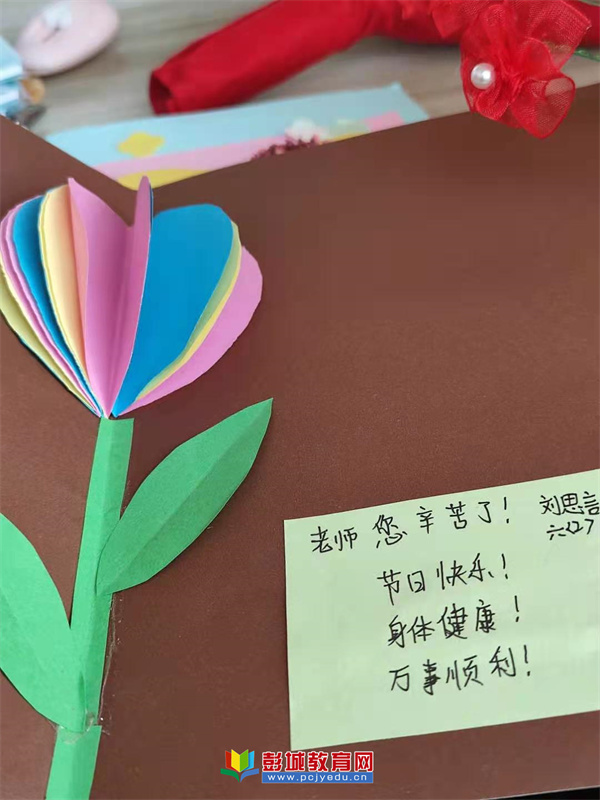 老师您辛苦了！
刘思言
六(2)
节日快乐！
身体健康！
万事顺利！
彭城教育网
www.pcjyedu.cn